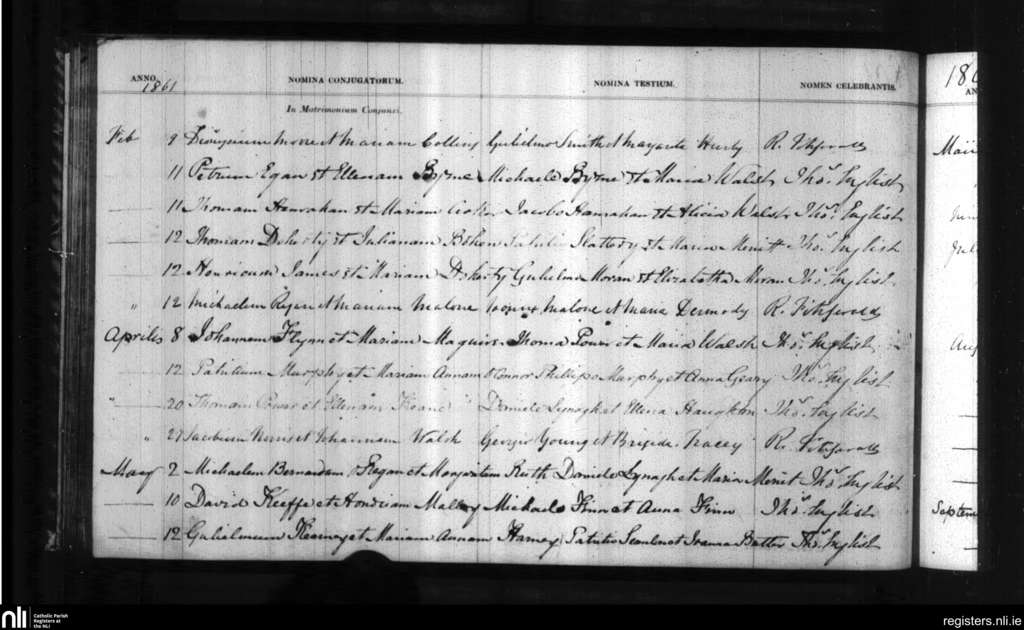 ANNO 1861 NOMINA CONJUGATORUM. NOMINA TESTIUM. NOMEN CELEBRANTIS.
In Matrimonium Conjunxi.
Feb 9 Dionysium et Mariam Collins Gulielmo Smith et Margarita R. Fitzgerald
11 Petrum Egan et Ellenam Byrne Michaele Byrne et Maria Walsh Thos. English
11 Thomam Hanrahan et Mariam Jacobo Hanrahan et Alicia Walsh Thos. English
12 Thomam Doherty et Julianam Slattery et Maria Thos. English
12 Henricum James et Mariam Doherty Gulielmo Moran et Elizabetha Moran Thos. English
" 12 Michaelem Ryan et Mariam Malone Malone et Maria Dermody R. Fitzgerald
Aprilis 8 Johannem Flynn et Mariam Maguire Thoma Power et Maria Walsh Thos. English
12 Patricium Murphy et Mariam Annam O'Connor Phillippo Murphy et Anna Geary Thos. English
20 Thomam Power et Ellenam Keane Daniele Lynagh et Ellena Thos. English
" 27 Jacobum et Johannam Walsh Georgio Young et Brigida Tracey R. Fitzgerald
May 2 Michaelem Bernardum O'Regan et Margaritam Ruth Daniele Lynagh et Maria Thos. English
10 David Keeffe et Honoriam Michaele Finn et Anna Finn Thos. English
12 Gulielmum Kearney et Mariam Annam Patritio et Butler Thos. English
186
AN
Maii
Aug
Septem
nli Catholic Parish
Registers at
the NLI
registers.nli.ie